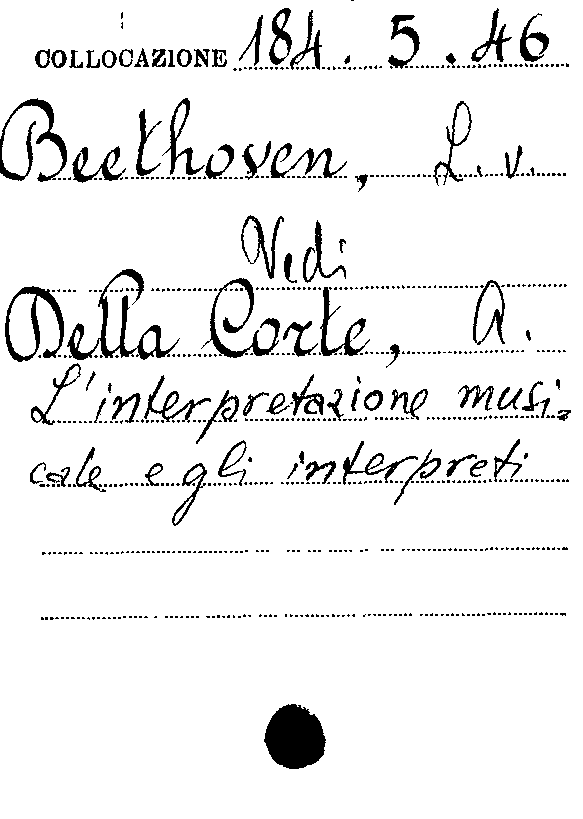 COLLOCAZIONE 184. 5. 46
Beethoven, L. v.
Vedi
Della Corte, A.
L'interpretazione musi=
cale e gli interpreti